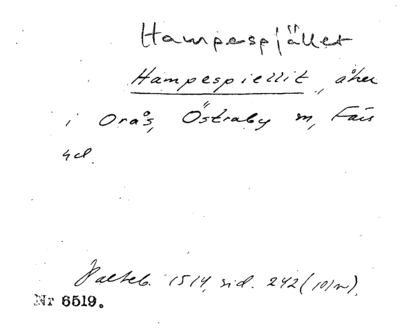 Hampespjället
Hampespiellit, åker
i Orås, Östraby sn, Färs
hd.
Palteb. 1514, sid. 242 (101r).
Nr 6519.